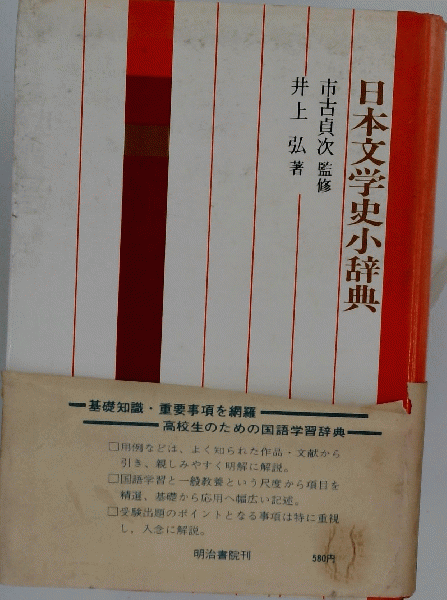 日本文学史小辞典
市古貞次 監修
井上 弘 著
基礎知識・重要事項を網羅
高校生のための国語学習辞典
□用例などは、よく知られた作品・文献から
引き、親しみやすく明解に解説。
□国語学習と一般教養という尺度から項目を
精選、基礎から応用へ幅広い記述。
□受験出題のポイントとなる事項は特に重視
し、入念に解説。
明治書院刊
580円